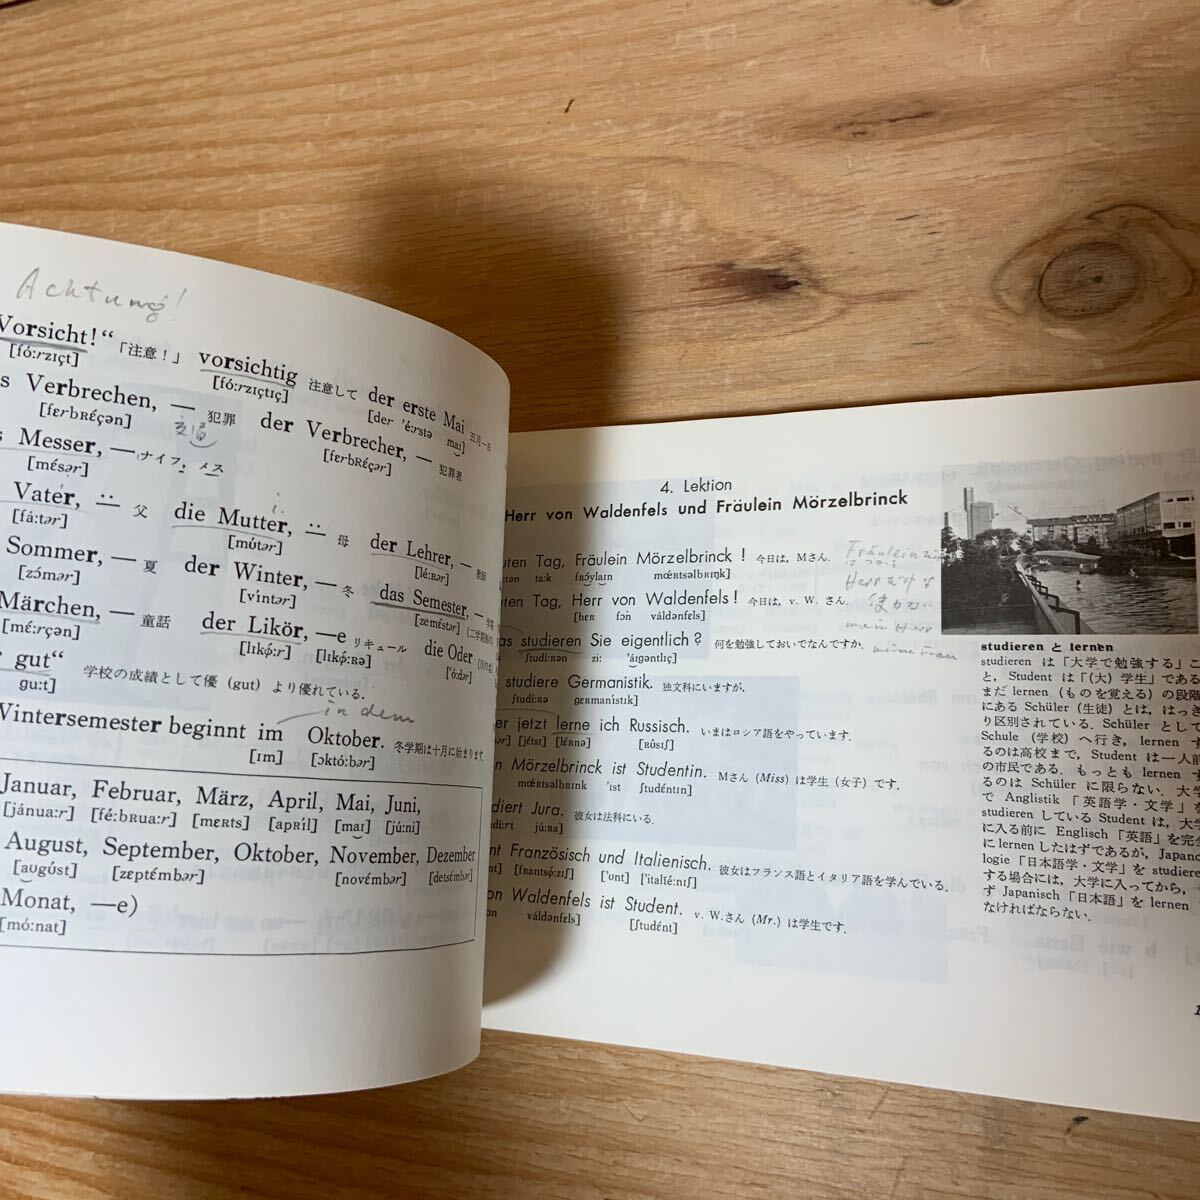 Achtung!
Vorsicht!“ 「注意！」 vorsichtig 注意して der erste Mai 五月一日
[fó:rzɪçt] [fó:rzɪçtɪç] [der 'é:rstə maɪ]
s Verbrechen, — 犯罪 der Verbrecher, — 犯罪者
[fɛrbRɛ́çən] [fɛrbRɛ́çər]
s Messer, — ナイフ, メス
[mɛ́sər]
Vater, ⸚ 父 die Mutter, ⸚ 母 der Lehrer, — 教師
[fá:tər] [mútər] [lé:Rər]
Sommer, — 夏 der Winter, — 冬 das Semester, — 学期
[zɔ́mər] [víntər] [zemɛ́stər] (二学期制の)
Märchen, — 童話 der Likör, —e リキュール die Oder (川の名)
[mɛ́:rçən] [lɪkǿ:r] [lɪkǿ:Rə] ['ó:dər]
gut“ 学校の成績として優 (gut) より優れている.
gu:t]
in dem
Wintersemester beginnt im Oktober. 冬学期は十月に始まります.
[ɪm] [ɔktó:bər]
Januar, Februar, März, April, Mai, Juni,
[jánua:r] [fé:bRua:r] [mɛRts] [apRíl] [maɪ] [jú:ni]
August, September, Oktober, November, Dezember
[augúst] [zɛptémbər] [novémbər] [detsémbər]
Monat, —e)
[mó:nat]
4. Lektion
Herr von Waldenfels und Fräulein Mörzelbrinck
uten Tag, Fräulein Mörzelbrinck ! 今日は, Mさん.
tən ta:k fRɔ́ylaɪn mœRtsəlbRɪŋk]
uten Tag, Herr von Waldenfels ! 今日は, v. W. さん.
[hɛR fɔn váldənfɛls]
as studieren Sie eigentlich ? 何を勉強しておいでなんですか.
[ʃtudí:Rən zi: 'áɪgəntlɪç]
studiere Germanistik. 独文科にいますが.
[ʃtudí:Rə gɛRmanístɪk]
er jetzt lerne ich Russisch. いまはロシア語をやっています.
[jɛtst] [lɛ́Rnə] [RúsɪʃJ]
n Mörzelbrinck ist Studentin. Mさん (Miss) は学生 (女子) です.
mœRtsəlbRɪnk 'ɪst ʃtudéntɪn]
diert Jura. 彼女は法科にいる.
dí:rt jú:Ra]
nt Französisch und Italienisch. 彼女はフランス語とイタリア語を学んでいる.
nt] [fRantsǿ:zɪʃ] ['ʊnt] ['italié:nɪʃ]
on Waldenfels ist Student. v. W.さん (Mr.) は学生です.
on váldənfɛls] [ʃtudɛ́nt]
Fräulein
Herr
mein Herr
meine Frau
studieren と lernen
studieren は「大学で勉強する」こ
と, Student は「(大) 学生」である
まだ lernen (ものを覚える) の段階
にある Schüler (生徒) とは, はっき
り区別されている. Schüler として
Schule (学校) へ行き, lernen す
るのは高校まで, Student は一人前
の市民である. もっとも lernen す
るのは Schüler に限らない. 大学
で Anglistik 「英語学・文学」を
studieren している Student は, 大学
に入る前に Englisch 「英語」を完全
に lernen したはずであるが, Japano
logie 「日本語学・文学」を studiere
する場合には, 大学に入ってから, ま
ず Japanisch 「日本語」を lernen
なければならない.